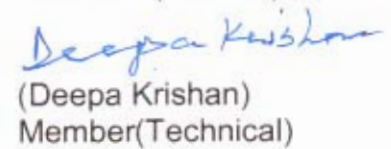 Deepa Krishan
(Deepa Krishan)
Member(Technical)